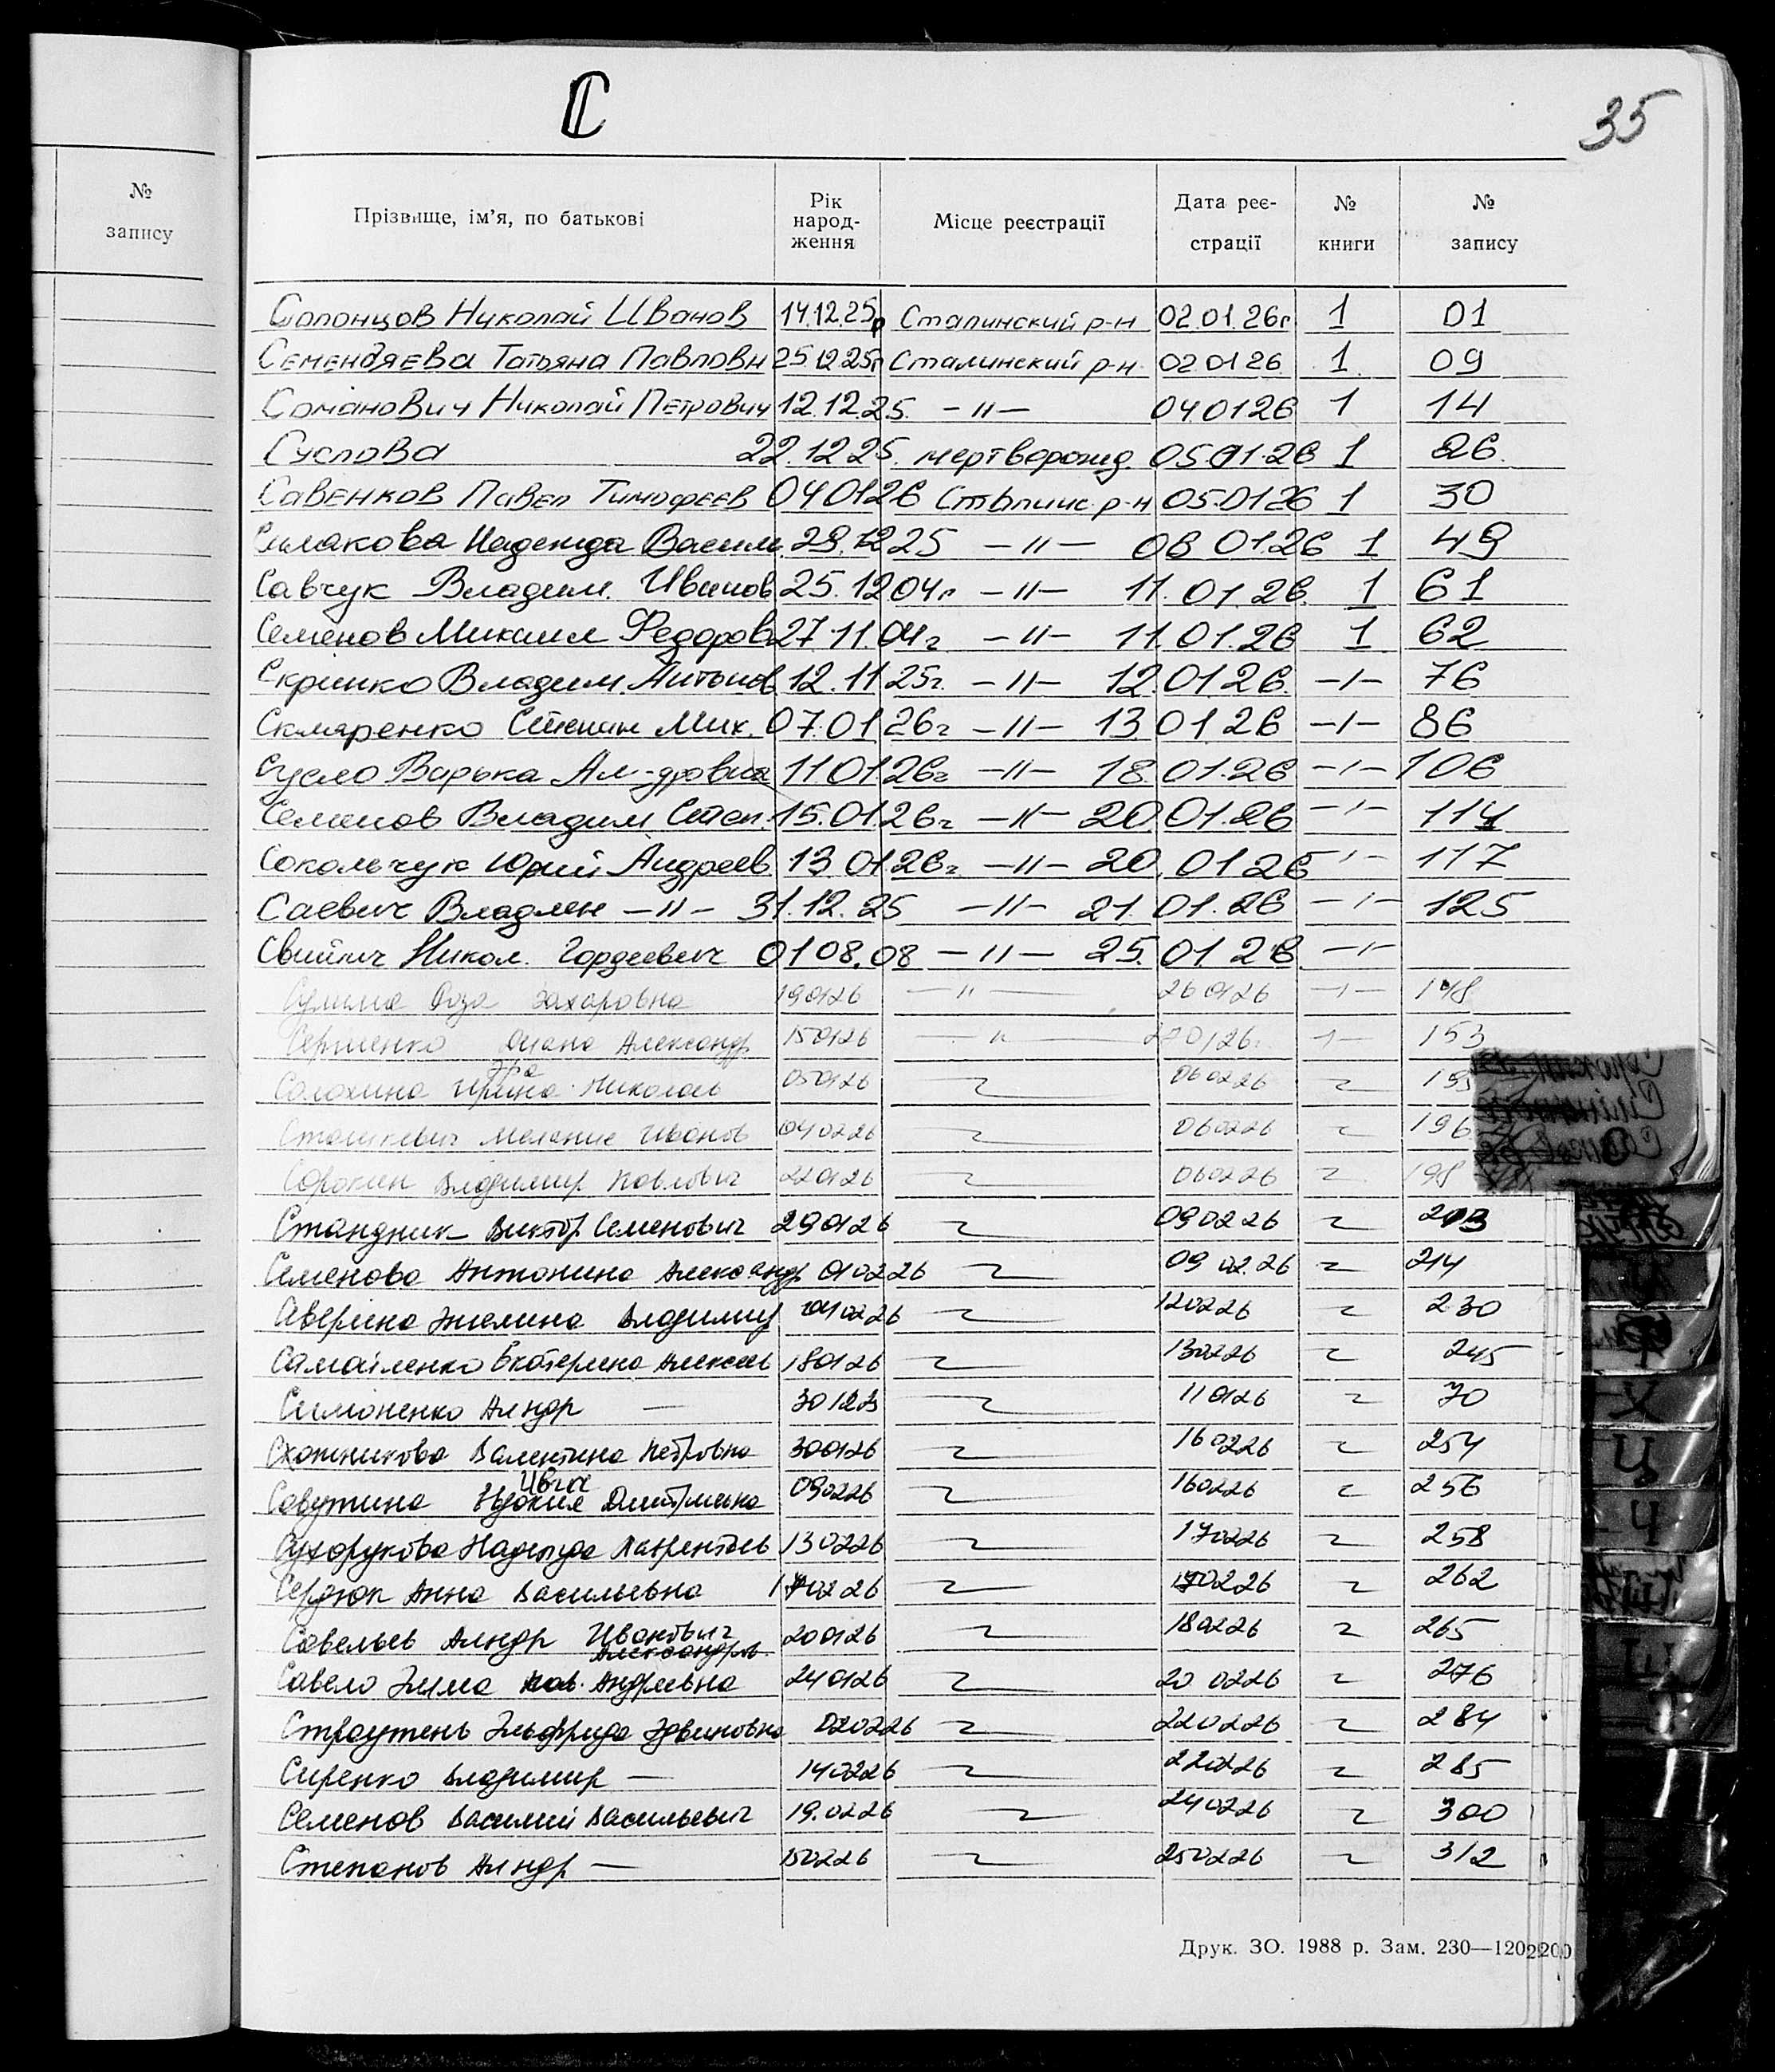 С
35
№ запису
Прізвище, ім'я, по батькові Рік народ-ження Місце реєстрації Дата реє-страції № книги № запису
Николай Иванов 14.12.25р Сталинский р-н 02.01.26г 1 01
Семендяева Татьяна Павловн 25.12.25г Сталинский р-н 02 01 26 1 09
Романович Николай Петрович 12.12.25. -"- 04 01 26 1 14
Суслова 22.12 25. мертворожд. 05 01.26 1 26.
Савенков Павел Тимофеев 04 01 26 р-н 05.01 26 1 30
Симакова Надежда Васил. 29.12 25 -"- 06 01.26 1 49
Савчук Владим. Иванов 25.12 04г -"- 11.01.26. 1 61
Семенов Михаил Федоров 27.11.04г -"- 11.01.26 1 62
Владим. Антонов 12.11 25г. -"- 12.01 26. -1- 76
Скляренко Степан Мих. 07.01 26г -"- 13 01 26 -1- 86
Сусло Варька Ал-дровна 11 01.26г -"- 18.01.26 -1- 106
Семенов Владим Степ. 15.01.26г -"- 20 01.26 -1- 114
Сокольчук Юрий Андреев 13 01.26г -"- 20.01 26 -1- 117
Саевич Владлен -"- 31.12.25 -"- 21.01.26 -1- 125
Никол. Гордеевич 01 08.08 -"- 25.01 26 -1-
Роза Захаровна 190126 -"- 260126 -1- 148
Диана Александр 150126 -"- 270126 -1- 153
Солохина Ира Николаев 050126 060226
Станкевич Мелание Иванов 040226 060226 196
Сорокин Владимир Павлович 220126 060226 198
Стандник Виктор Семенович 290126 090226 203
Семенова Антонина Александр 010226 09 02.26 214
Аверина Владимир 040226 120226 230
Самойленко Екатерина Алексеев 180126 130226 245
Симоненко Алндр — 301223 110126 70
Валентина Петровна 300126 160226 254
Савутина Дмитриевна 090226 160226 256
Сухорукова Надежда Лаврентьев 130226 170226 258
Сердюк Анна Васильевна 170226 170226 262
Савельев Алндр Иванович Александров. 200126 180226 265
Савело Андреевна 240126 20 0226 276
Страутень Эльфрида Эдвиновна 020226 220226 284
Сиренко Владимир — 140226 220226 285
Семенов Василий Васильевич 19.0226 240226 300
Степанов Алндр — 150226 250226 312
Друк. ЗО. 1988 р. Зам. 230—120